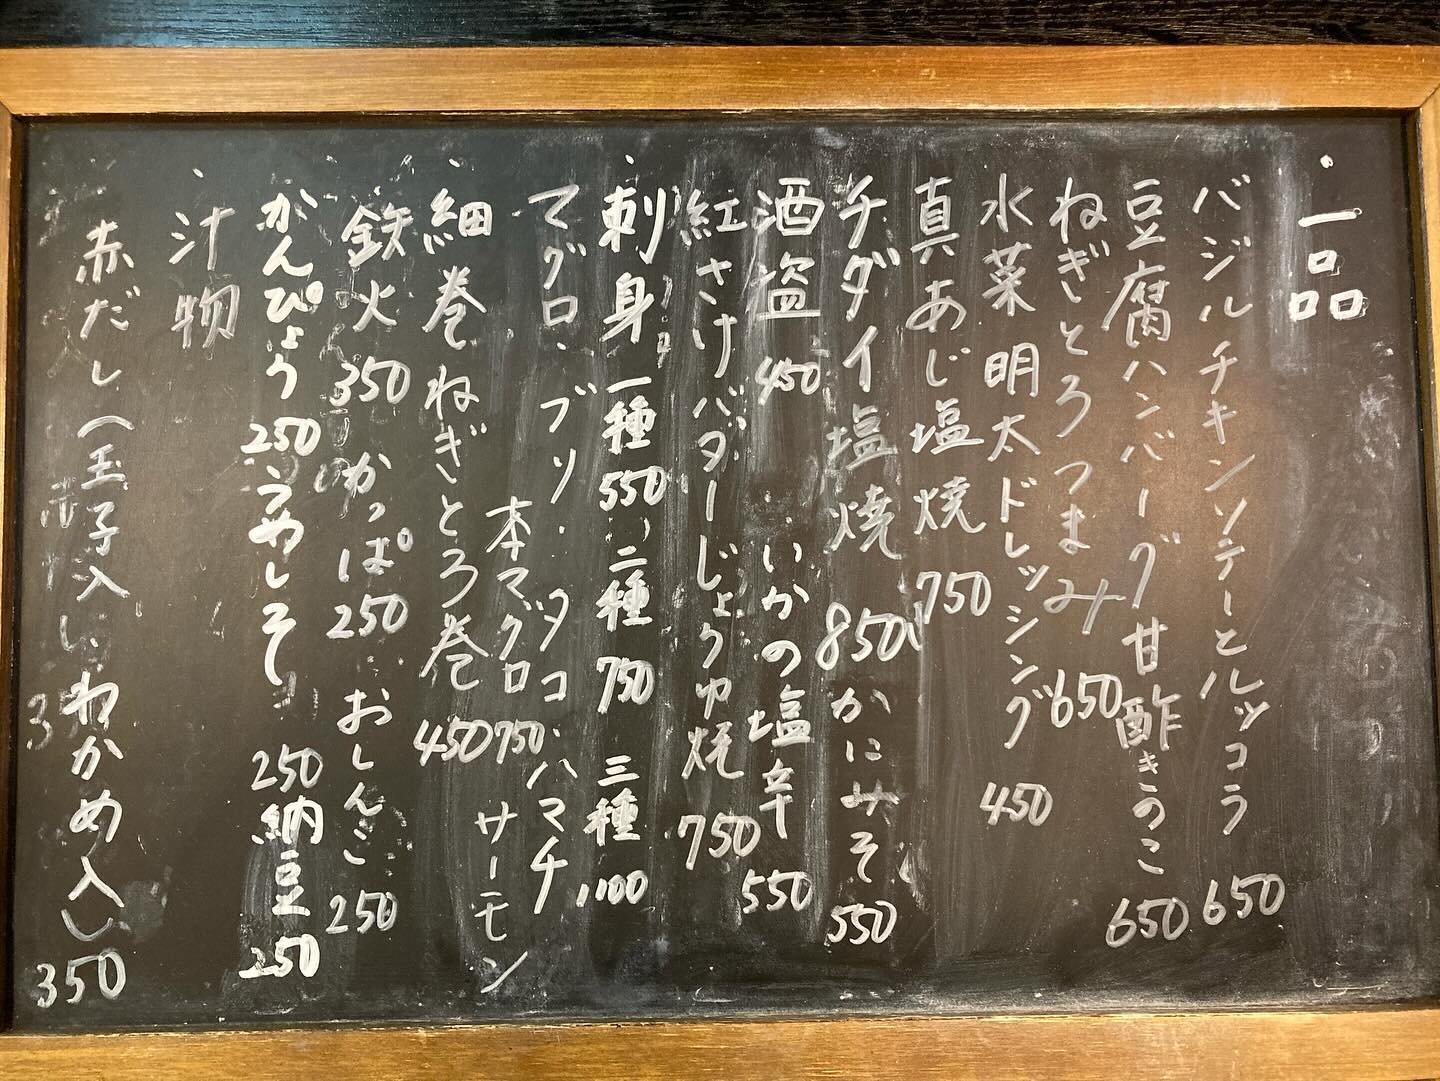 ・一品
バジルチキンソテーとルッコラ 650
豆腐ハンバーグ 甘酢きのこ 650
ねぎとろつまみ 650
水菜 明太ドレッシング 450
真あじ塩焼 750
チダイ塩焼 850 かにみそ 550
酒盗 450 いかの塩辛 550
紅さけバターしょうゆ焼 750
・刺身 一種 550、二種 750 三種 1,100
マグロ・ブリ・タコ・ハマチ
本マグロ 750 サーモン
・細巻 ねぎとろ巻 450
鉄火 350 かっぱ 250 おしんこ 250
かんぴょう 250 うめしそ 250 納豆 250
・汁物
赤だし(玉子入り、わかめ入り) 350